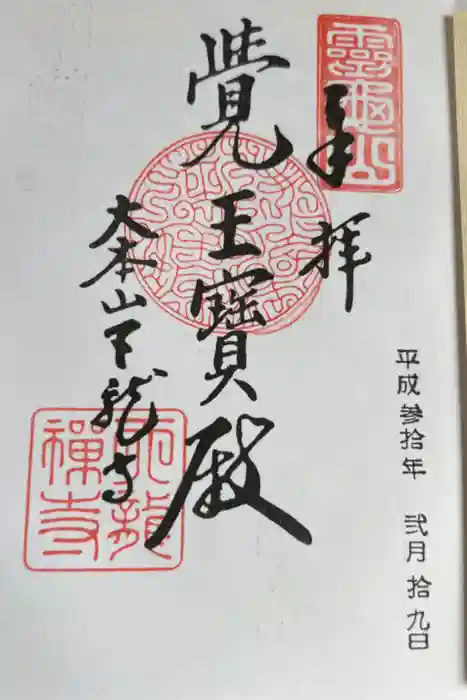 平成参拾年 弐月拾九日
霊亀山
奉拝
覺王寶殿
大本山天龍寺
天龍禅寺